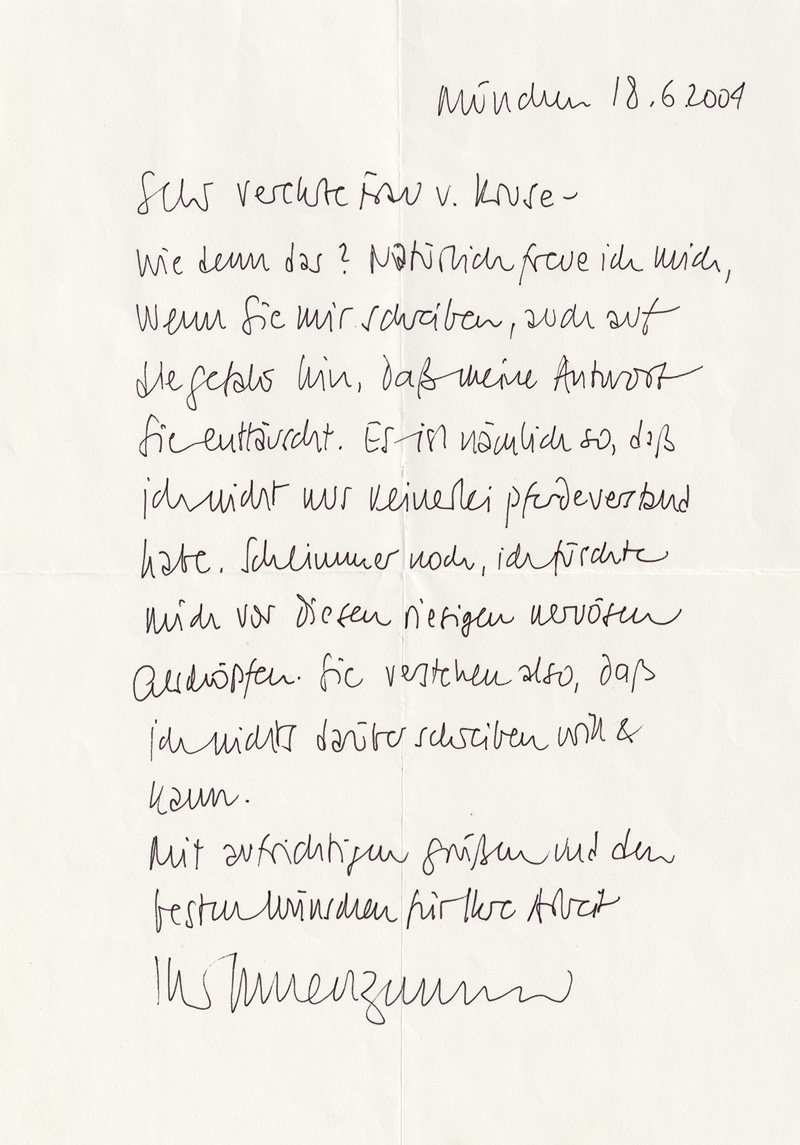 München 18.6.2001
Sehr verehrte Frau v. Kruse –
Wie denn das? Natürlich freue ich mich,
wenn Sie mir schreiben, auch auf
die gefahr hin, daß meine Antwort
Sie enttäuscht. Es ist nämlich so, daß
ich nicht nur keinerlei pferdeverstand
habe. Schlimmer noch, ich fürchte
mich vor diesen riesigen nervösen
Geschöpfen. Sie verstehen also, daß
ich nichts darüber schreiben will &
kann.
Mit aufrichtigen grüßen und den
besten Wünschen für Ihre Arbeit
Ihr